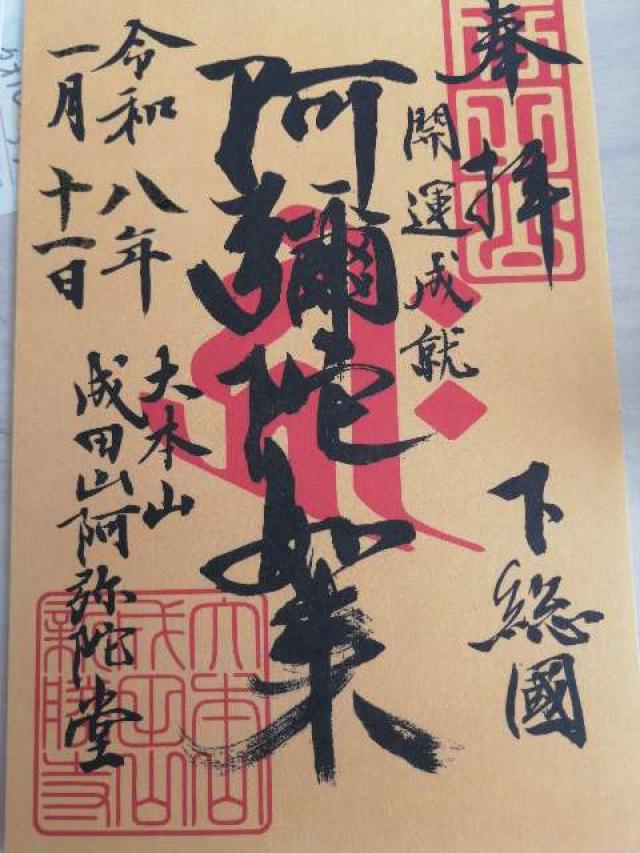 奉拝
下総國
開運成就
阿彌陀如来
令和八年
一月十一日
大本山
成田山阿弥陀堂
大本山
成田山
新勝寺